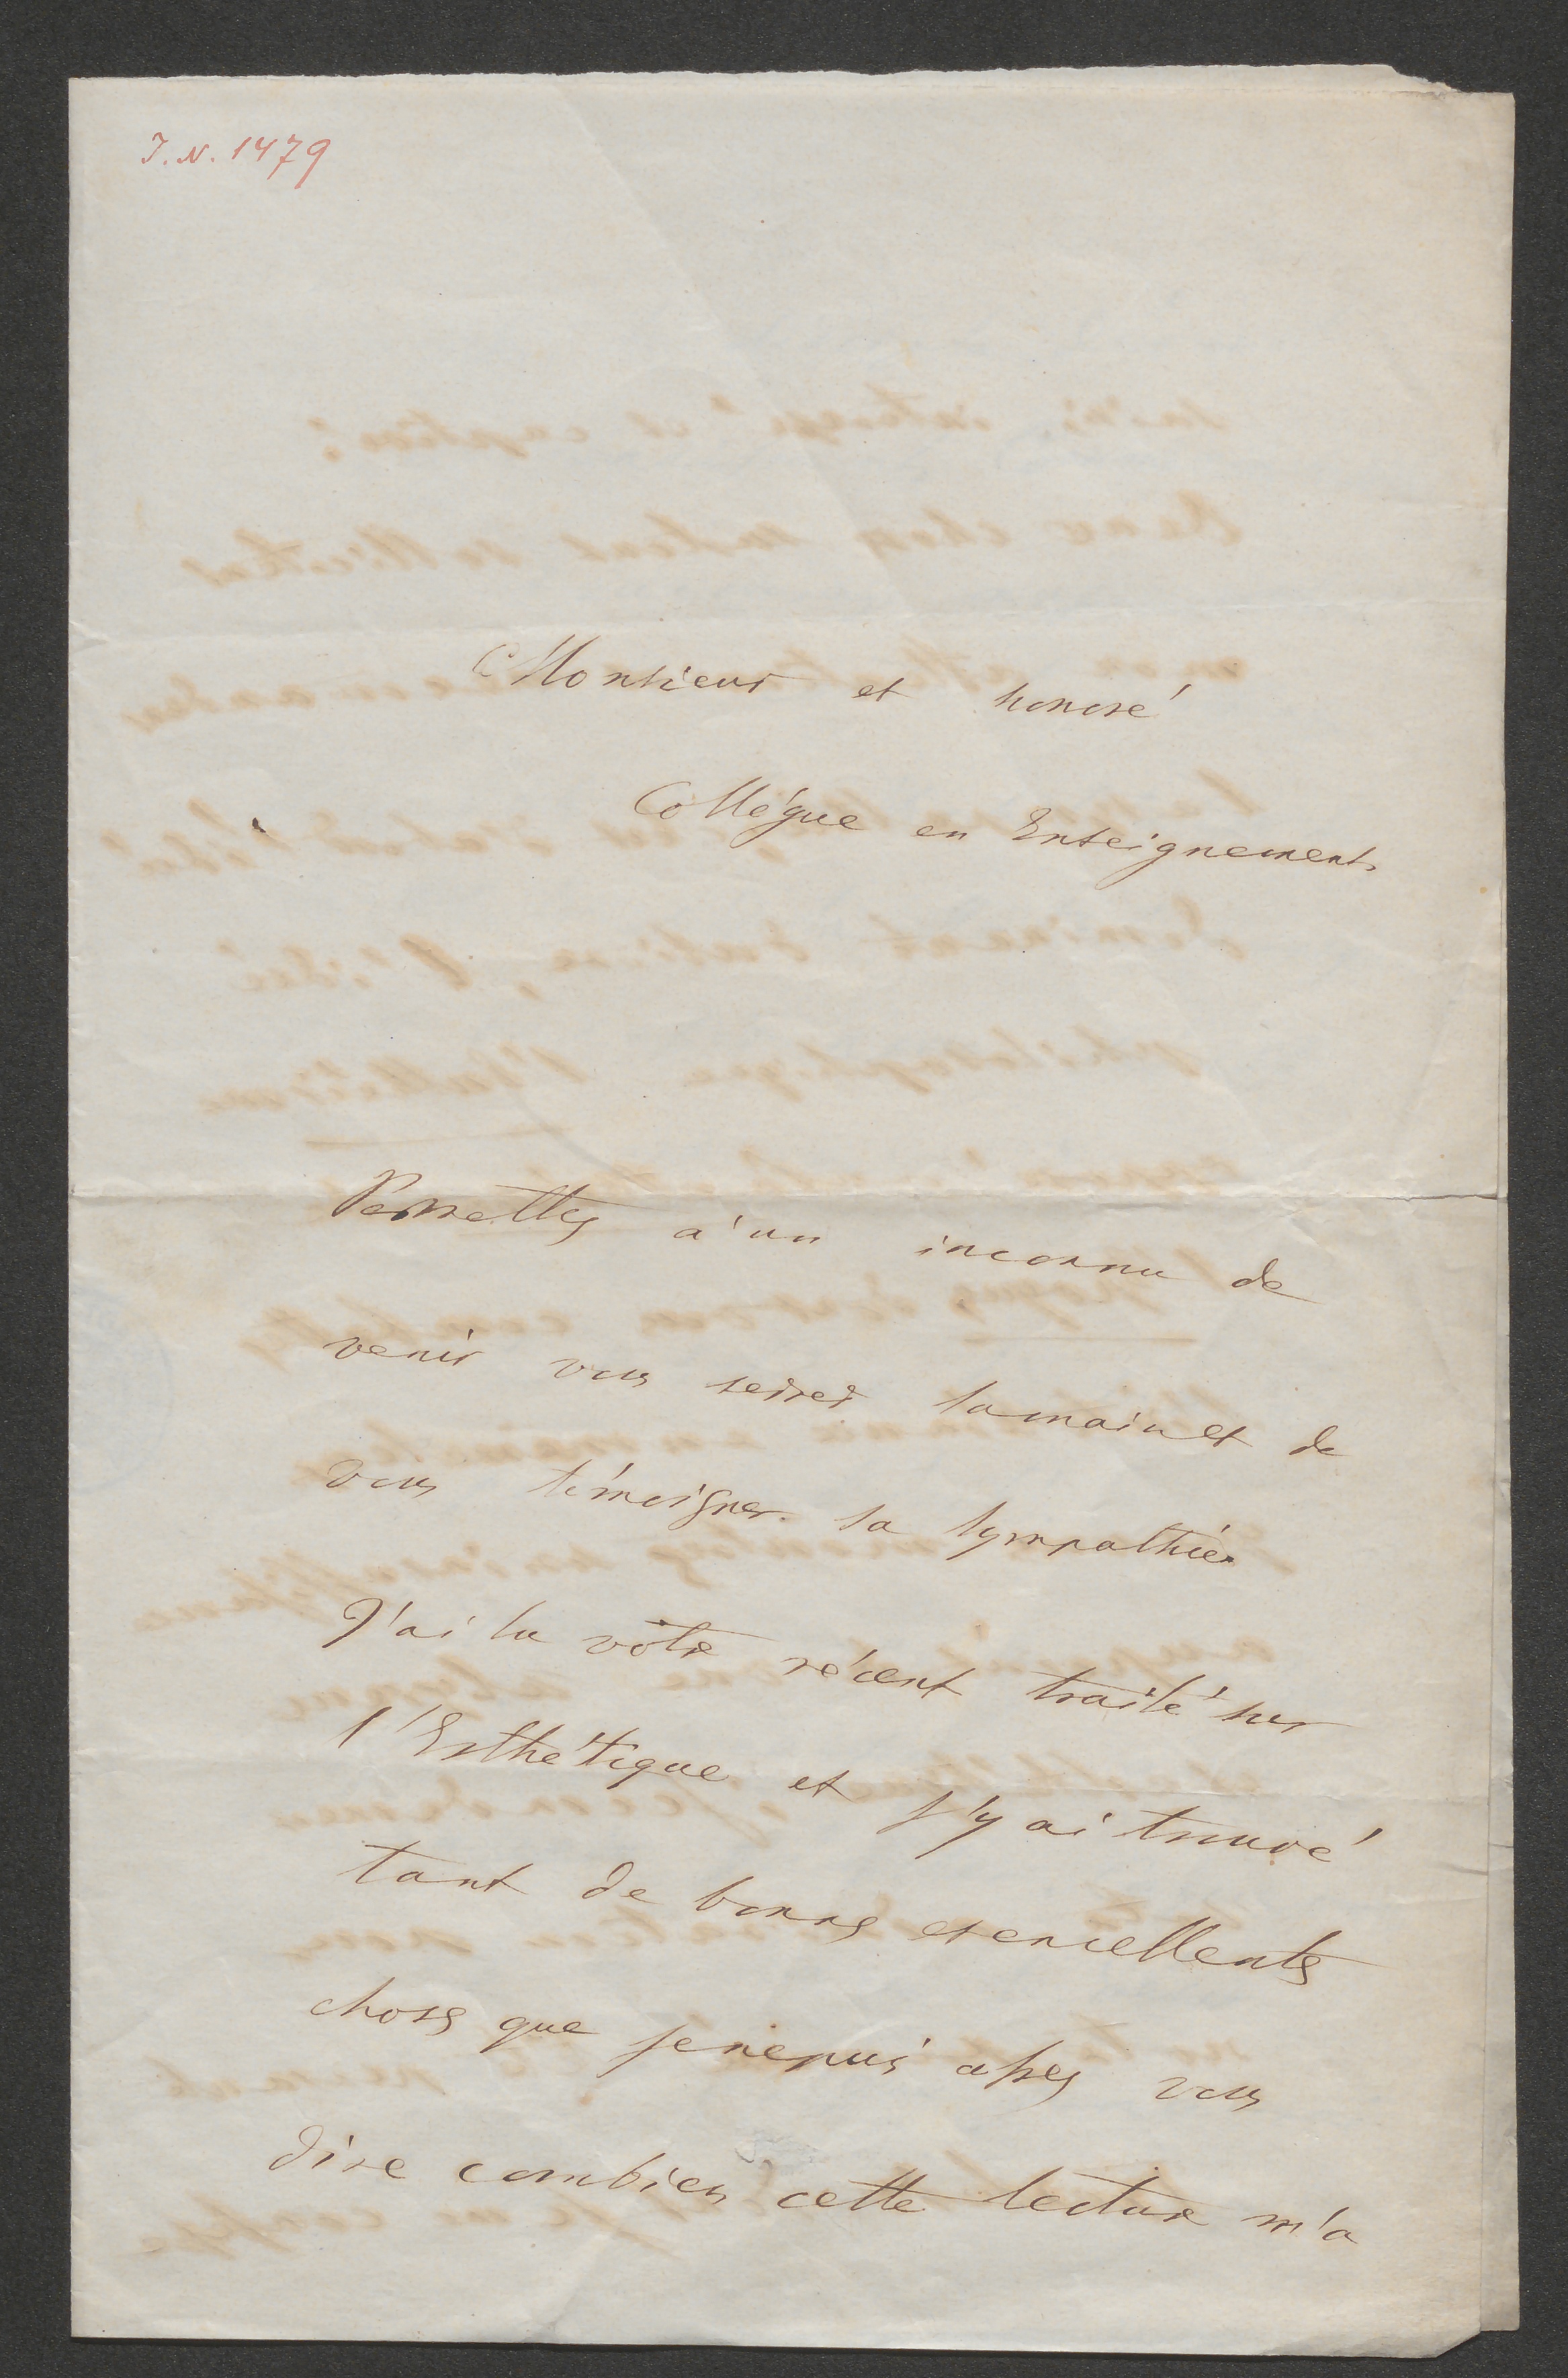 J. N. 1479
Monsieur et honoré
Collégue en Enseignement,
Permettez a'un inconnu de
venir vous serrer la main et de
vous témoigner sa sympathie.
J'ai lu vôtre récent traité sur
l'Esthétique et j'y ai trouvé
tant de bonnes et excellentes
choses que je ne puis assez vous
dire combien cette lecture m'a